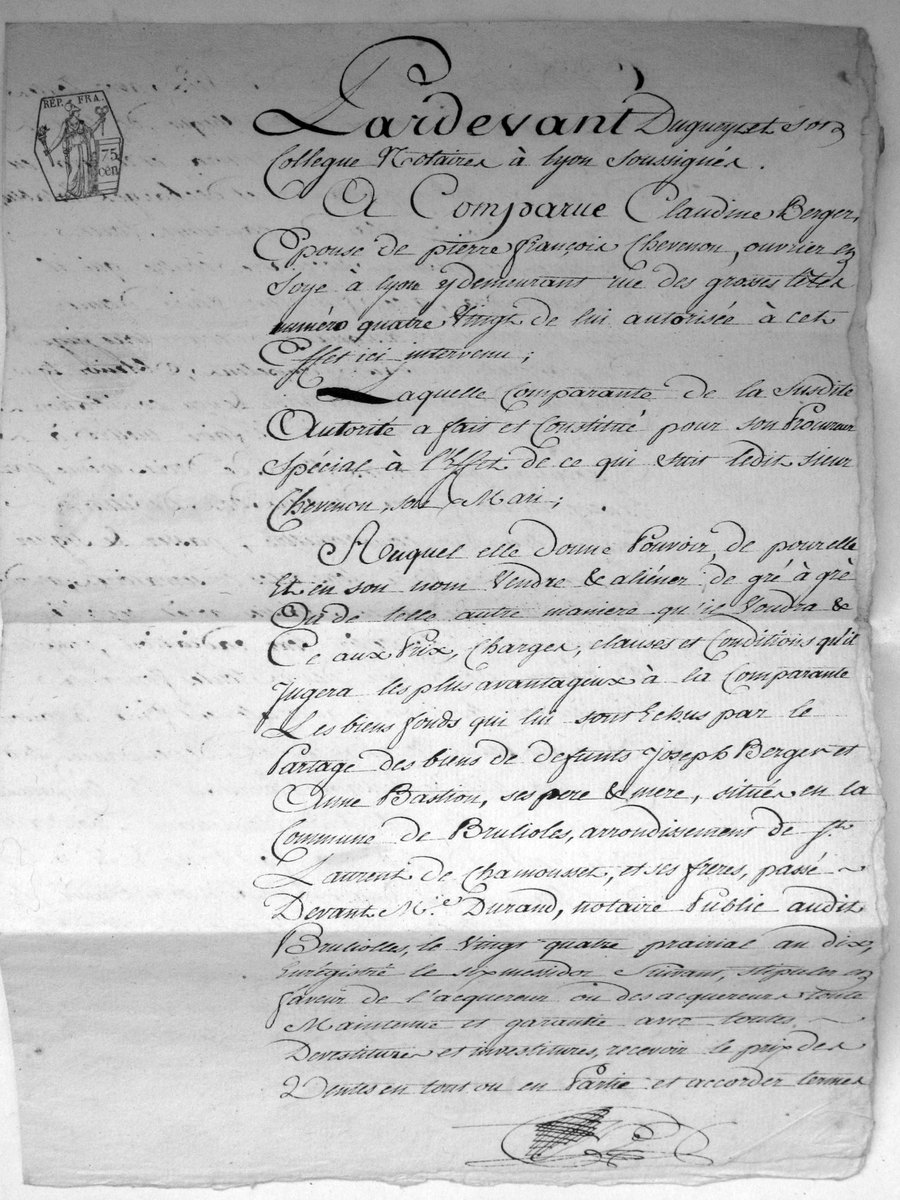 RÉP. FRA.
75
cen
Pardevant Dugueyt et son
Collegue Notaires à Lyon soussignés.
A Comparue Claudine Berger,
Epouse de pierre françois Chevenon, ouvrier en
Soye à lyon y demeurant rue des grosses têtes
numéro quatre Vingt de lui autorisée à cet
Effet ici intervenu;
Laquelle Comparante de la susdite
Autorité a fait et Constitué pour son Procureur
Spécial à l'Effet de ce qui suit ledit sieur
Chevenon, son Mari;
Auquel elle donne Pouvoir, de pour elle
Et en son nom Vendre & aliéner de gré à gré
Ou de telle autre maniere qu'il Voudra &
Ce aux Prix, Charges, clauses et Conditions qu'il
Jugera les plus avantageux à la Comparante
Les biens fonds qui lui sont Echus par le
Partage des biens de defunts Joseph Berger et
Anne Bastion, ses pere & mere, situés en la
Commune de Brulioles, arrondissement de St.
Laurent de Chamousset, et ses freres, passé
Devant Me. Durand, notaire Public audit
Brulioles, le Vingt quatre prairial an dix,
Enrégistré le six messidor Suivant, stipuler en
faveur de l'acquereur ou des acquereurs toute
Maintenue et garantie avec toutes
Devestitures et investitures, recevoir le prix des
Ventes en tout ou en Partie et accorder termes